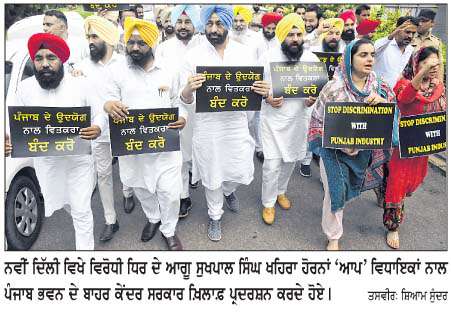 ਪੰਜਾਬ ਦੇ ਉਦਯੋਗ
ਨਾਲ ਵਿਤਕਰਾ
ਬੰਦ ਕਰੋ
ਪੰਜਾਬ ਦੇ ਉਦਯੋਗ
ਨਾਲ ਵਿਤਕਰਾ
ਬੰਦ ਕਰੋ
ਪੰਜਾਬ ਦੇ ਉਦਯੋਗ
ਨਾਲ ਵਿਤਕਰਾ
ਬੰਦ ਕਰੋ
ਨਾਲ ਵਿਤਕਰਾ
ਬੰਦ ਕਰੋ
STOP DISCRIMINATION
WITH
PUNJAB INDUSTRY
STOP DISCRIMINATION
WITH
PUNJAB INDUSTRY
ਨਵੀਂ ਦਿੱਲੀ ਵਿਖੇ ਵਿਰੋਧੀ ਧਿਰ ਦੇ ਆਗੂ ਸੁਖਪਾਲ ਸਿੰਘ ਖਹਿਰਾ ਹੋਰਨਾਂ ‘ਆਪ’ ਵਿਧਾਇਕਾਂ ਨਾਲ
ਪੰਜਾਬ ਭਵਨ ਦੇ ਬਾਹਰ ਕੇਂਦਰ ਸਰਕਾਰ ਖ਼ਿਲਾਫ਼ ਪ੍ਰਦਰਸ਼ਨ ਕਰਦੇ ਹੋਏ।
ਤਸਵੀਰ: ਸ਼ਿਆਮ ਸੁੰਦਰ